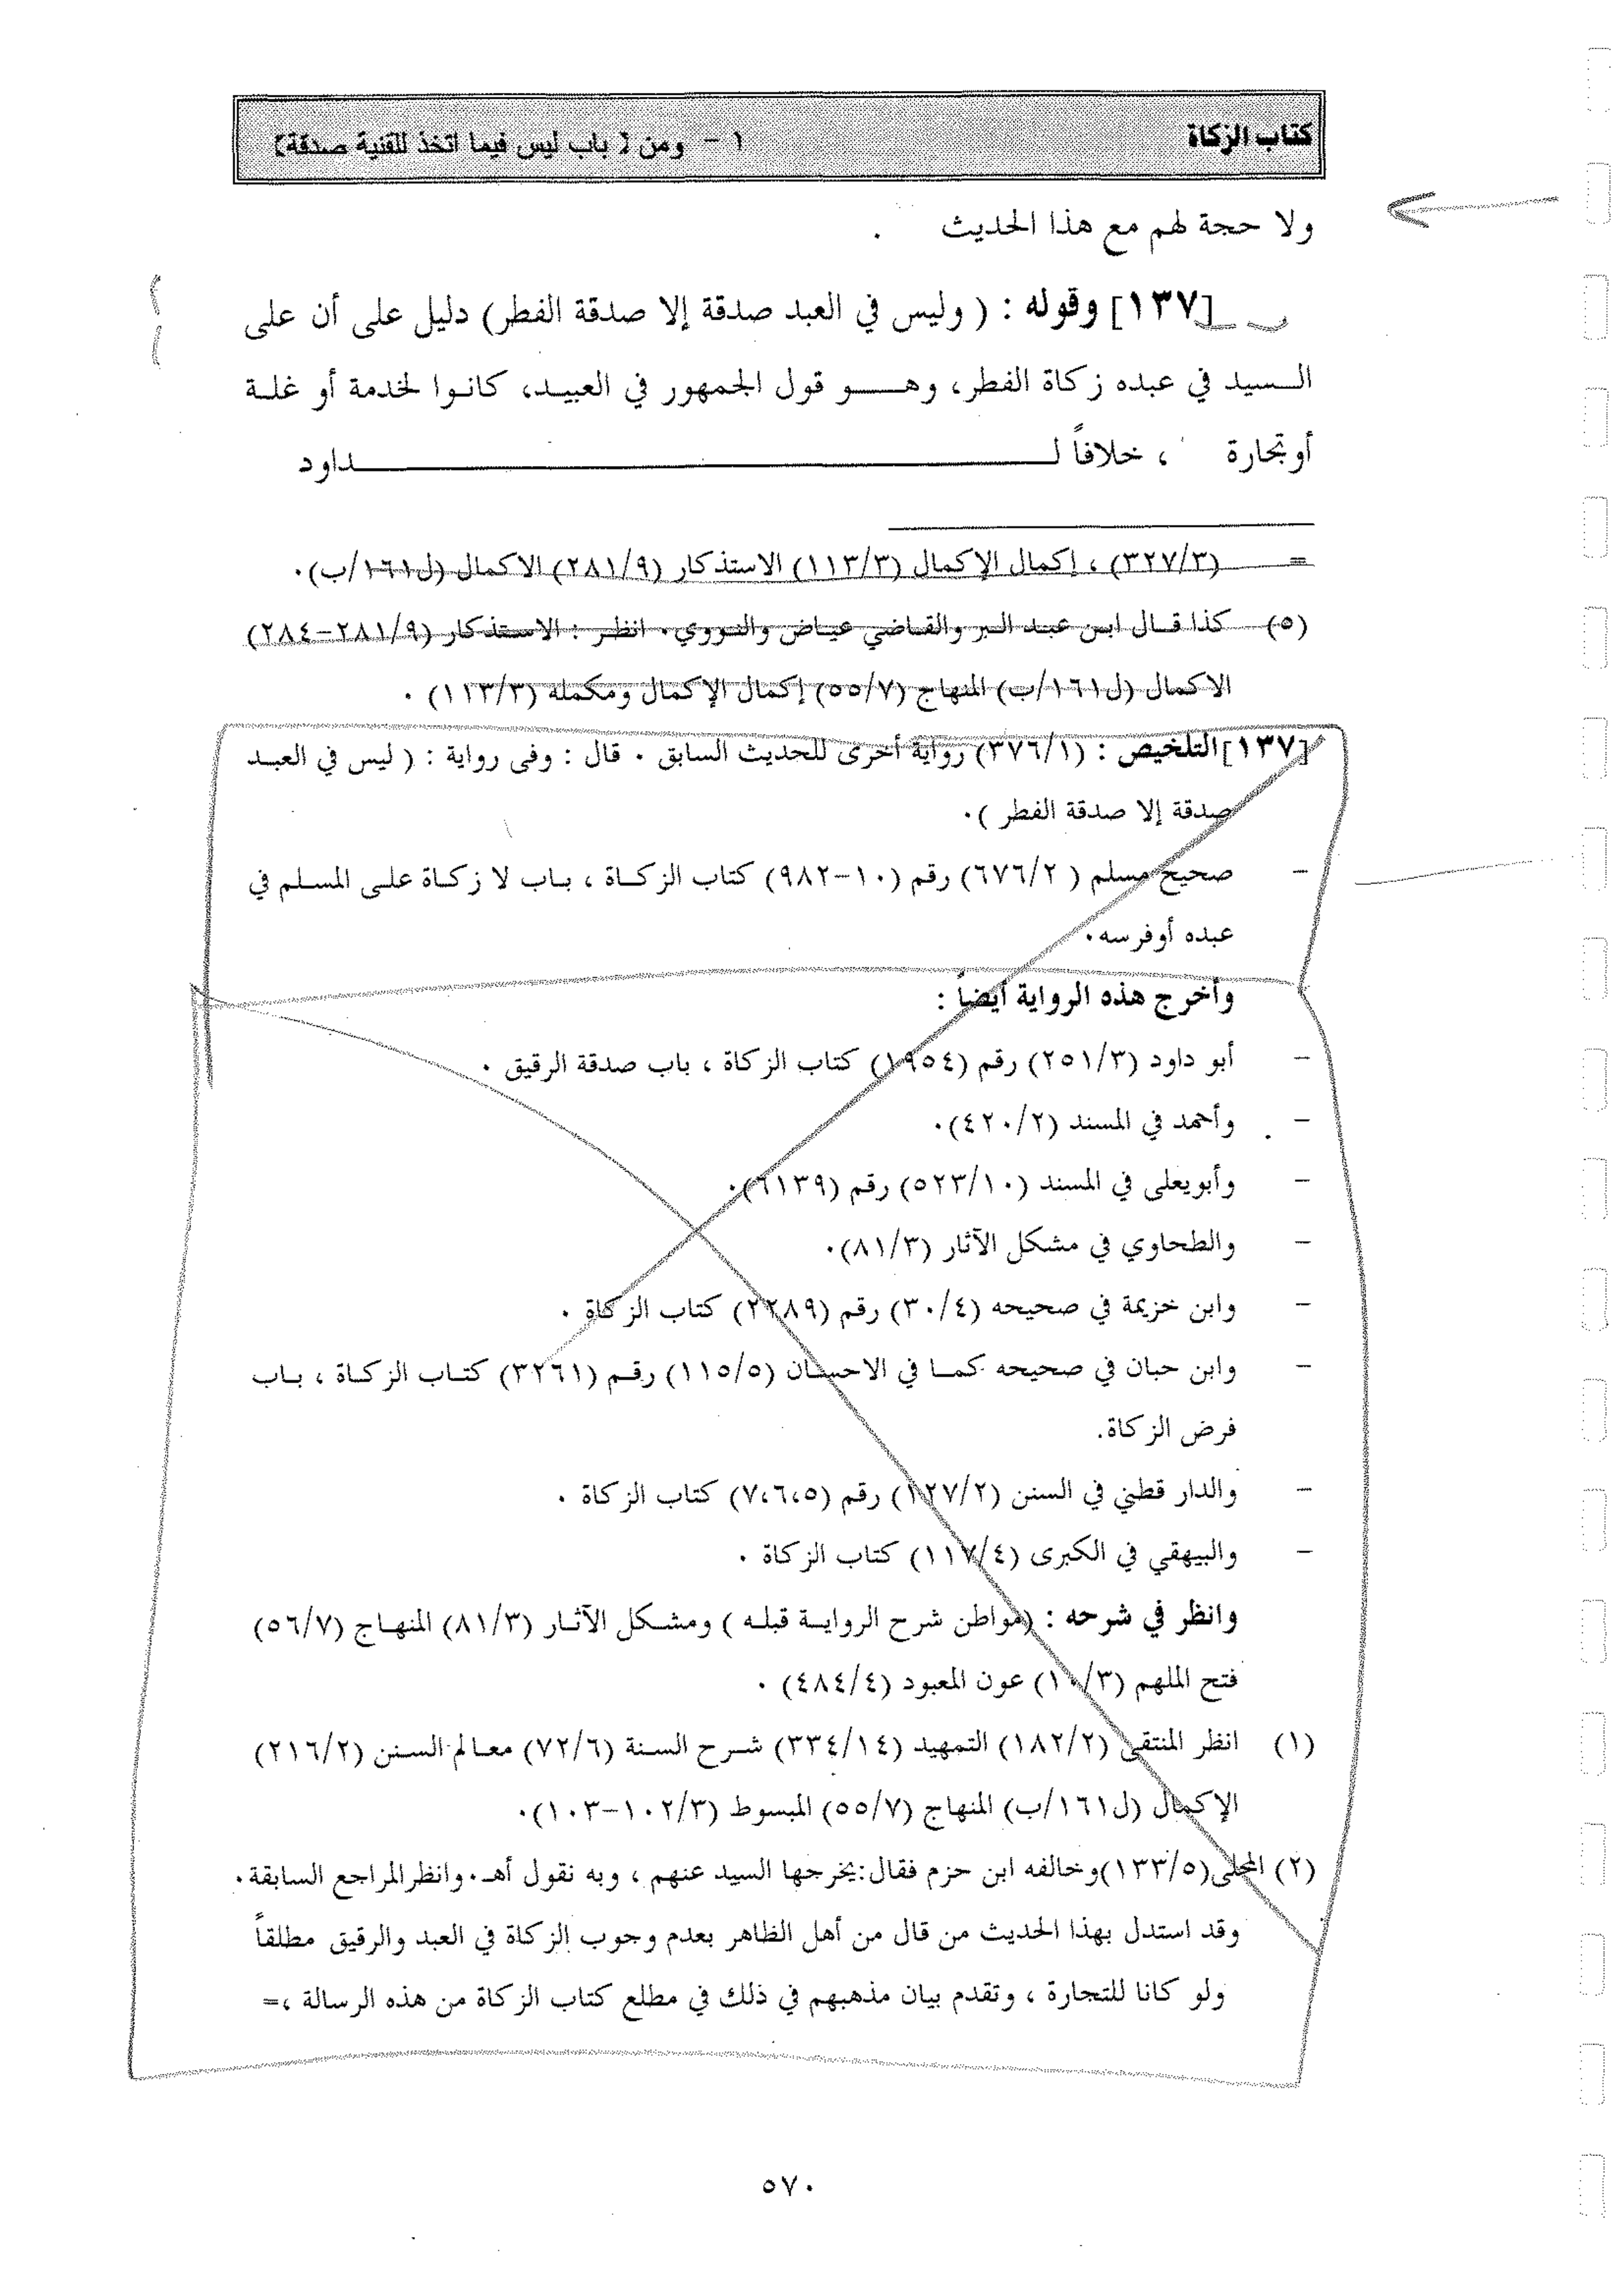 كتاب الزكاة
١ - ومن [ باب ليس فيما اتخذ للقنية صدقة]
ولا حجة لهم مع هذا الحديث .
[١٣٧] وقوله : ( وليس في العبد صدقة إلا صدقة الفطر) دليل على أن على
السيد في عبده زكاة الفطر، وهو قول الجمهور في العبيد، كانوا لخدمة أو غلة
أو تجارة ، خلافاً لداود
= (٣٢٧/٣) ، إكمال الإكمال (١١٣/٣) الاستذكار (٢٨١/٩) الاكمال (ل١٦١/ب).
(٥) كذا قال ابن عبد البر والقاضي عياض والنووي. انظر : الاستذكار (٢٨١/٩-٢٨٤)
الاكمال (ل١٦١/ب) المنهاج (٥٥/٧) إكمال الإكمال ومكمله (١١٣/٣) .
[١٣٧] التلخيص : (٣٧٦/١) رواية أخرى للحديث السابق . قال : وفى رواية : ( ليس في العبد
صدقة إلا صدقة الفطر ).
- صحيح مسلم ( ٦٧٦/٢) رقم (١٠-٩٨٢) كتاب الزكاة ، باب لا زكاة على المسلم في
عبده أوفرسه.
وأخرج هذه الرواية أيضاً :
- أبو داود (٢٥١/٣) رقم (١٩٥٤) كتاب الزكاة ، باب صدقة الرقيق .
- وأحمد في المسند (٤٢٠/٢).
- وأبويعلى في المسند (٥٢٣/١٠) رقم (٦١٣٩).
- والطحاوي في مشكل الآثار (٨١/٣).
- وابن خزيمة في صحيحه (٣٠/٤) رقم (٢٢٨٩) كتاب الزكاة .
- وابن حبان في صحيحه كما في الاحسان (١١٥/٥) رقم (٣٢٦١) كتاب الزكاة ، باب
فرض الزكاة.
- والدار قطني في السنن (١٢٧/٢) رقم (٧،٦،٥) كتاب الزكاة .
- والبيهقي في الكبرى (١١٧/٤) كتاب الزكاة .
وانظر في شرحه : (مواطن شرح الرواية قبله ) ومشكل الآثار (٨١/٣) المنهاج (٥٦/٧)
فتح الملهم (١٠/٣) عون المعبود (٤٨٤/٤) .
(١) انظر المنتقى (١٨٢/٢) التمهيد (٣٣٤/١٤) شرح السنة (٧٢/٦) معالم السنن (٢١٦/٢)
الإكمال (ل١٦١/ب) المنهاج (٥٥/٧) المبسوط (١٠٢/٣-١٠٣).
(٢) المحلى(١٣٣/٥)وخالفه ابن حزم فقال:يخرجها السيد عنهم ، وبه نقول أهـ.وانظرالمراجع السابقة.
وقد استدل بهذا الحديث من قال من أهل الظاهر بعدم وجوب الزكاة في العبد والرقيق مطلقاً
ولو كانا للتجارة ، وتقدم بيان مذهبهم في ذلك في مطلع كتاب الزكاة من هذه الرسالة ،=
٥٧٠